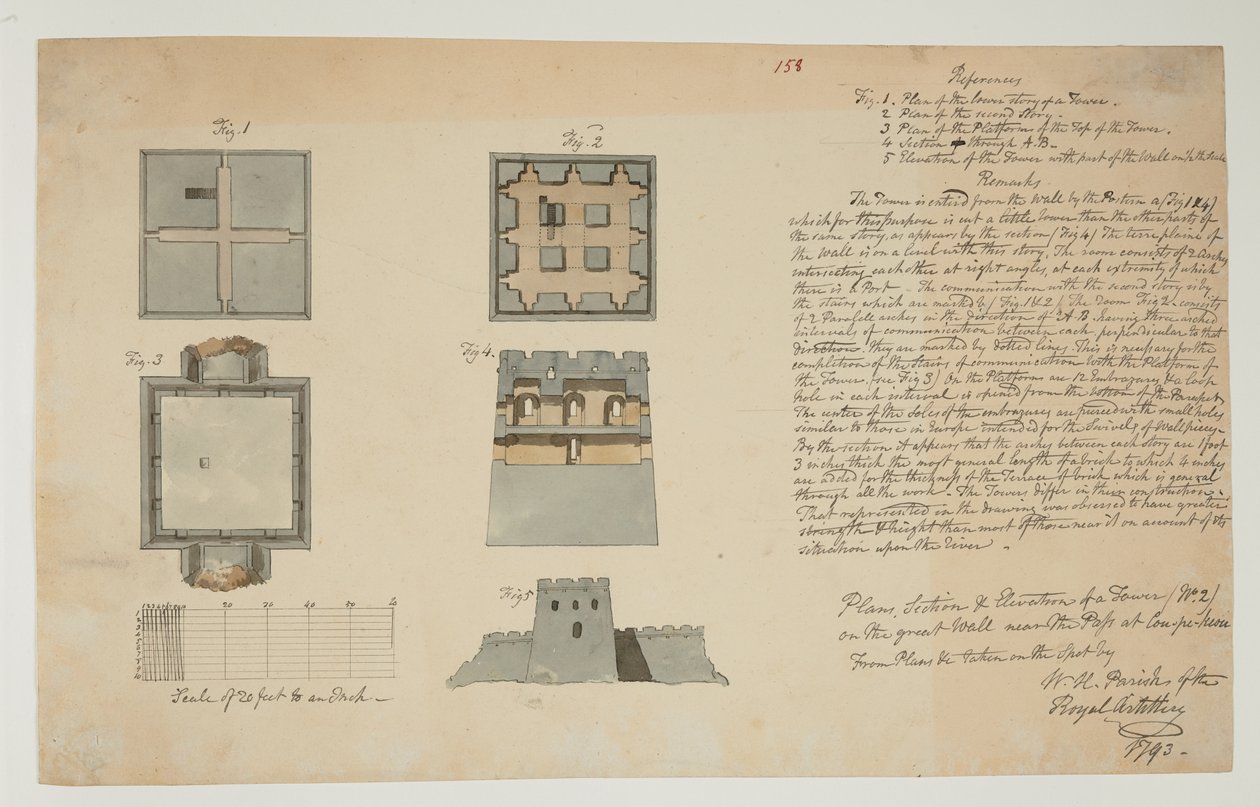 158
References
Fig. 1. Plan of the lower story of a Tower.
2 Plan of the second Story.
3 Plan of the Platform of the Top of the Tower.
4 Section through A.B-
5 Elevation of the Tower with part of the Wall on ½ the Scale
Remarks
The Tower is enter'd from the Wall by the Postern a/Fig 1&4/
which for this purpose is cut a little lower than the other parts of
the same story, as appears by the section/Fig 4/ The terre plaine of
the Wall is on a level with this story. The room consists of 2 Arches
intersecting each other at right angles, at each extremity of which
there is a Port - The communication with the second story is by
the stairs which are marked b/Fig. 1&2/ The room Fig 2 consists
of 2 Paralell arches in the direction of A B. having three arched
intervals of communication between each, perpendicular to that
direction. they are marked by dotted lines. This is necessary for the
completion of the Stairs of communication with the Platform of
the Tower (see Fig 3) On the Platform are 12 Embrazures & a loop
hole in each interval is opened from the bottom of the Parapet
The center of the Soles of the embrazures are pierced with small holes
similar to those in Europe intended for the Swivels of Wallpieces-
By the section it appears that the arches between each story are 1 foot
3 inches thick the most general length of a brick to which 4 inches
are added for the thickness of the Terrace of brick which is general
through all the work - The Towers differ in their construction.
That represented in the drawing was observed to have greater
strength & height than most of those near it on account of its
situation upon the River -
Fig. 1
Fig. 2
Fig. 3
Fig 4.
Fig 5
20 30 40 50 60
Scale of 20 feet to an Inch -
Plans, Section & Elevation of a Tower /No. 2/
on the great Wall near the Pass at Cou-pe-keou
From Plans &c Taken on the Spot by
W. H. Parish of the
Royal Artillery
1793 -